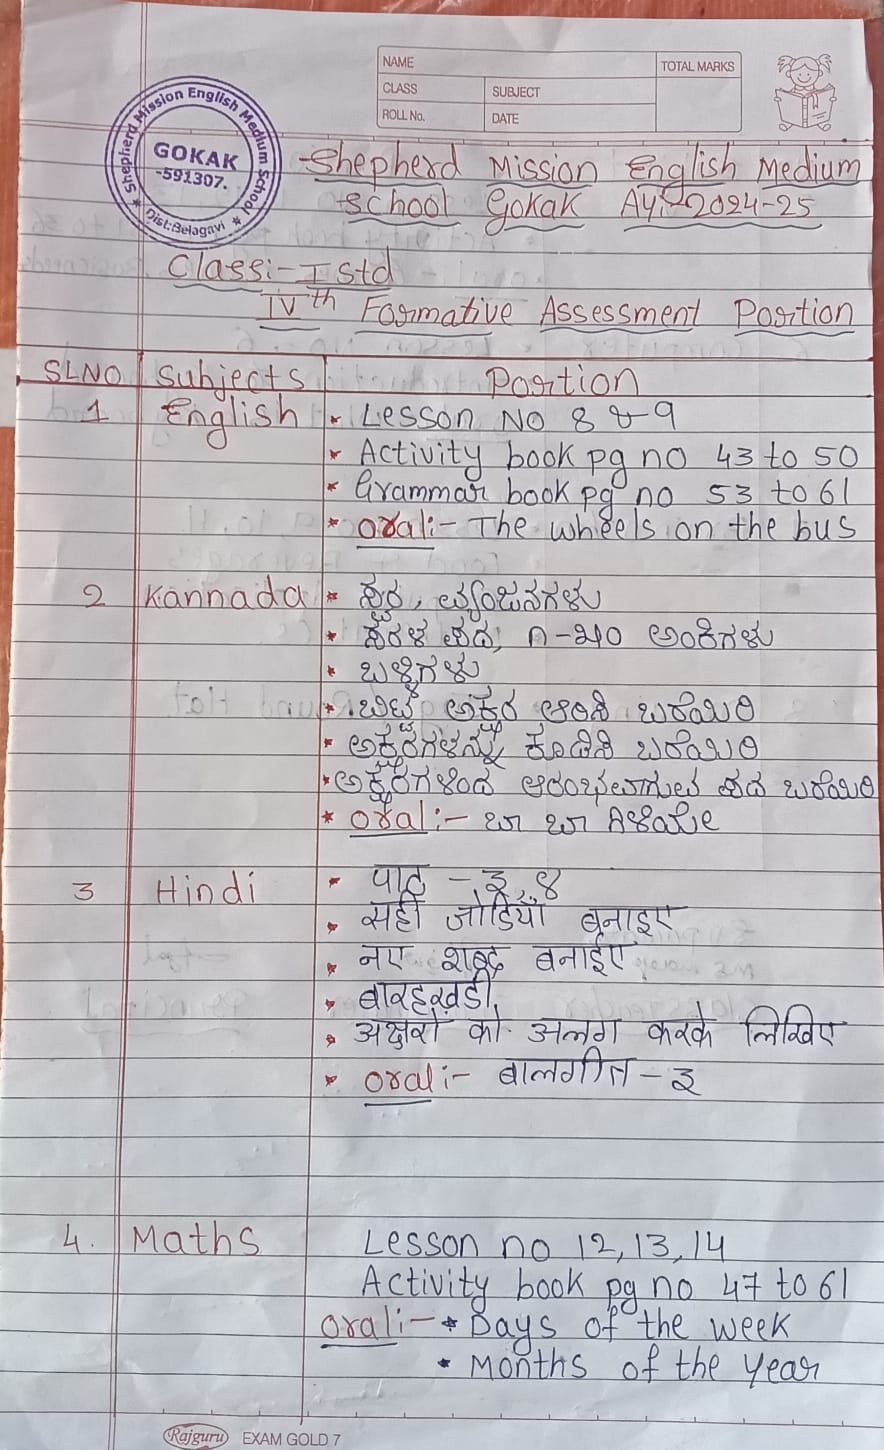 NAME
TOTAL MARKS
CLASS
SUBJECT
ROLL No.
DATE
Shepherd Mission English Medium School
GOKAK
-591307.
Dist:Belagavi
Shepherd Mission English Medium
School Gokak AY:-2024-25
Class:- I Std
IVth Formative Assessment Portion
SLNO Subjects Portion
1 English • Lesson No 8 & 9
• Activity book pg no 43 to 50
• Grammar book pg no 53 to 61
• oral:- The wheels on the bus
2 Kannada • ಸ್ವರ, ವ್ಯಂಜನಗಳು
• ಸರಳ ಪದ, ೧-೫೦ ಅಂಕಿಗಳು
• ಬಳ್ಳಿಗಳು
• ಬಿಟ್ಟ ಅಕ್ಷರ ಆರಿಸಿ ಬರೆಯಿರಿ
• ಅಕ್ಷರಗಳನ್ನು ಕೂಡಿಸಿ ಬರೆಯಿರಿ
• ಅಕ್ಷರಗಳಿಂದ ಆರಂಭವಾಗುವ ಪದ ಬರೆಯಿರಿ
* oral:- ಬಾ ಬಾ ಗಿಳಿಯೇ
3 Hindi • पाठ - ३,४
• सही जोडियाँ बनाइए
• नए शब्द बनाईए
• बारहखडी
• अक्षरों को अलग करके लिखिए
• oral:- बालगीत - ३
4. Maths Lesson no 12,13,14
Activity book pg no 47 to 61
oral:- • Days of the week
• Months of the year
Rajguru EXAM GOLD 7